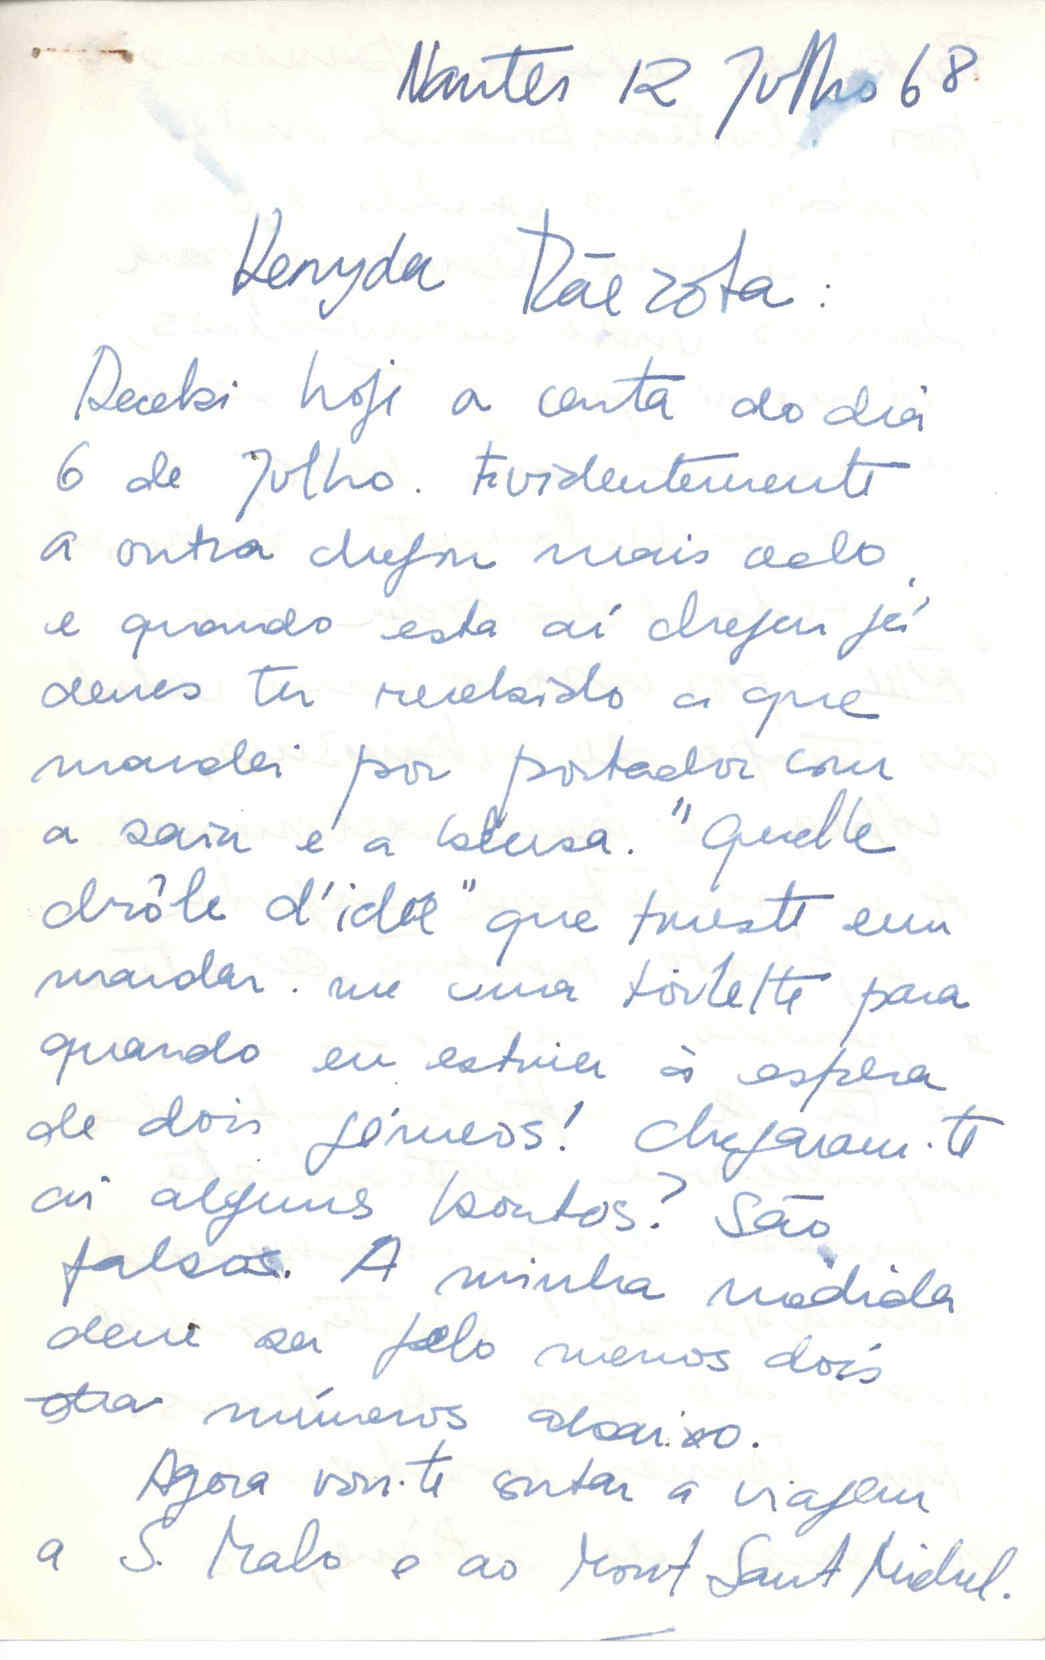 Nantes 12 Julho 68
Mãezota:
Recebi hoje a carta do dia
6 de Julho. Evidentemente
a outra chegou mais cedo,
e quando esta aí chegar já
deves ter recebido a que
mandei por portador com
a saia e a blusa. "Quelle
drôle d'idée" que tiveste em
mandar-me uma toilette para
quando eu estiver à espera
de dois gémeos! Chegaram-te
aí alguns boatos? São
falsos. A minha medida
deve ser pelo menos dois
números abaixo.
Agora vou-te contar a viagem
a S. Malo e ao Mont Saint Michel.